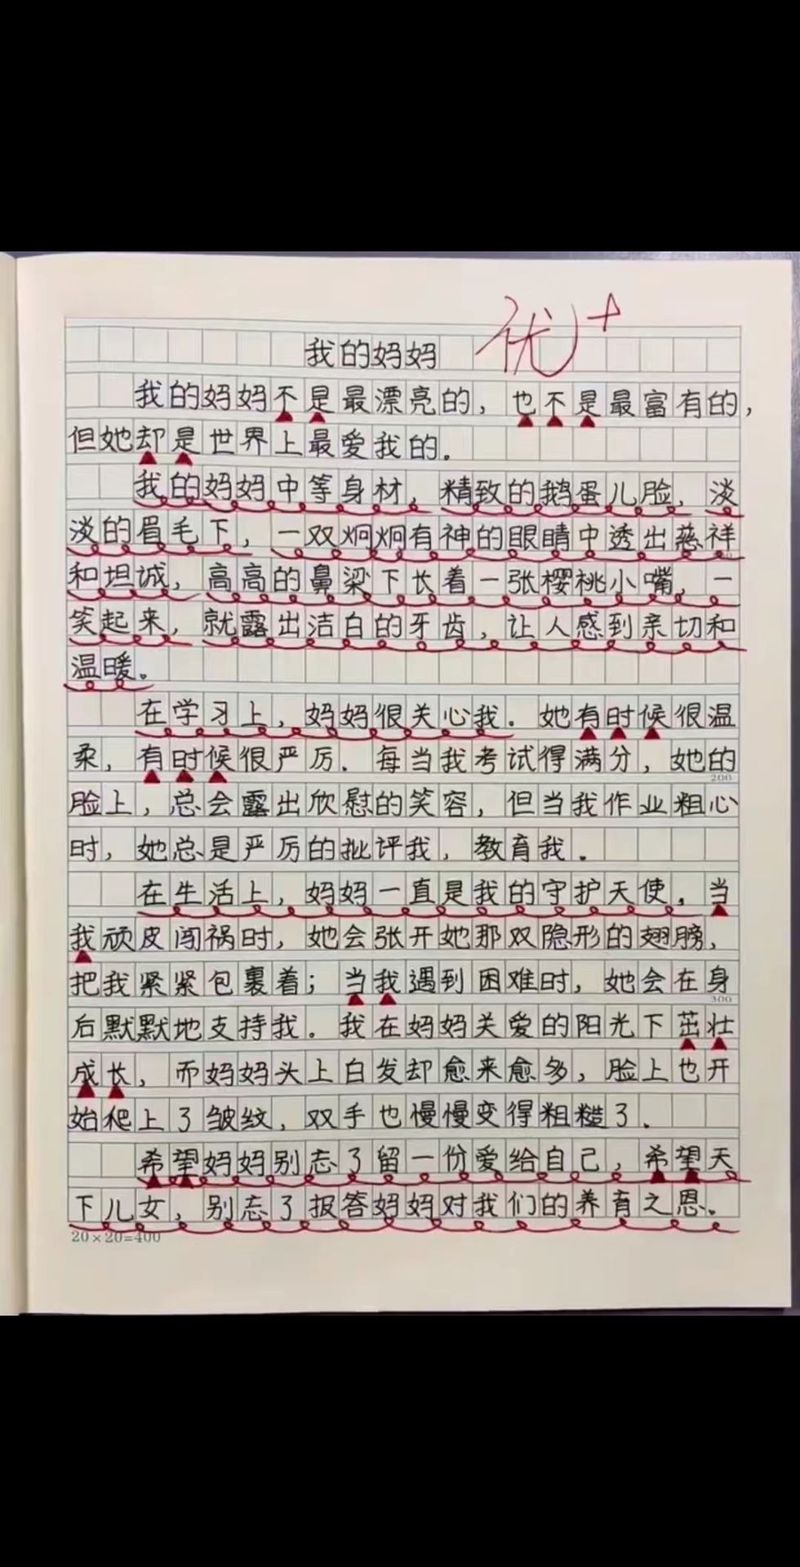 我的妈妈 优+
我的妈妈不是最漂亮的，也不是最富有的，
但她却是世界上最爱我的。
我的妈妈中等身材，精致的鹅蛋儿脸，淡
淡的眉毛下，一双炯炯有神的眼睛中透出慈祥
和坦诚，高高的鼻梁下长着一张樱桃小嘴，一
笑起来，就露出洁白的牙齿，让人感到亲切和
温暖。
在学习上，妈妈很关心我．她有时候很温
柔，有时候很严厉．每当我考试得满分，她的
200
脸上，总会露出欣慰的笑容，但当我作业粗心
时，她总是严厉的批评我，教育我．
在生活上，妈妈一直是我的守护天使，当
我顽皮闯祸时，她会张开她那双隐形的翅膀，
把我紧紧包裹着；当我遇到困难时，她会在身
300
后默默地支持我。我在妈妈关爱的阳光下茁壮
成长，而妈妈头上白发却愈来愈多，脸上也开
始爬上了皱纹，双手也慢慢变得粗糙了．
希望妈妈别忘了留一份爱给自己，希望天
下儿女，别忘了报答妈妈对我们的养育之恩。
20×20=400